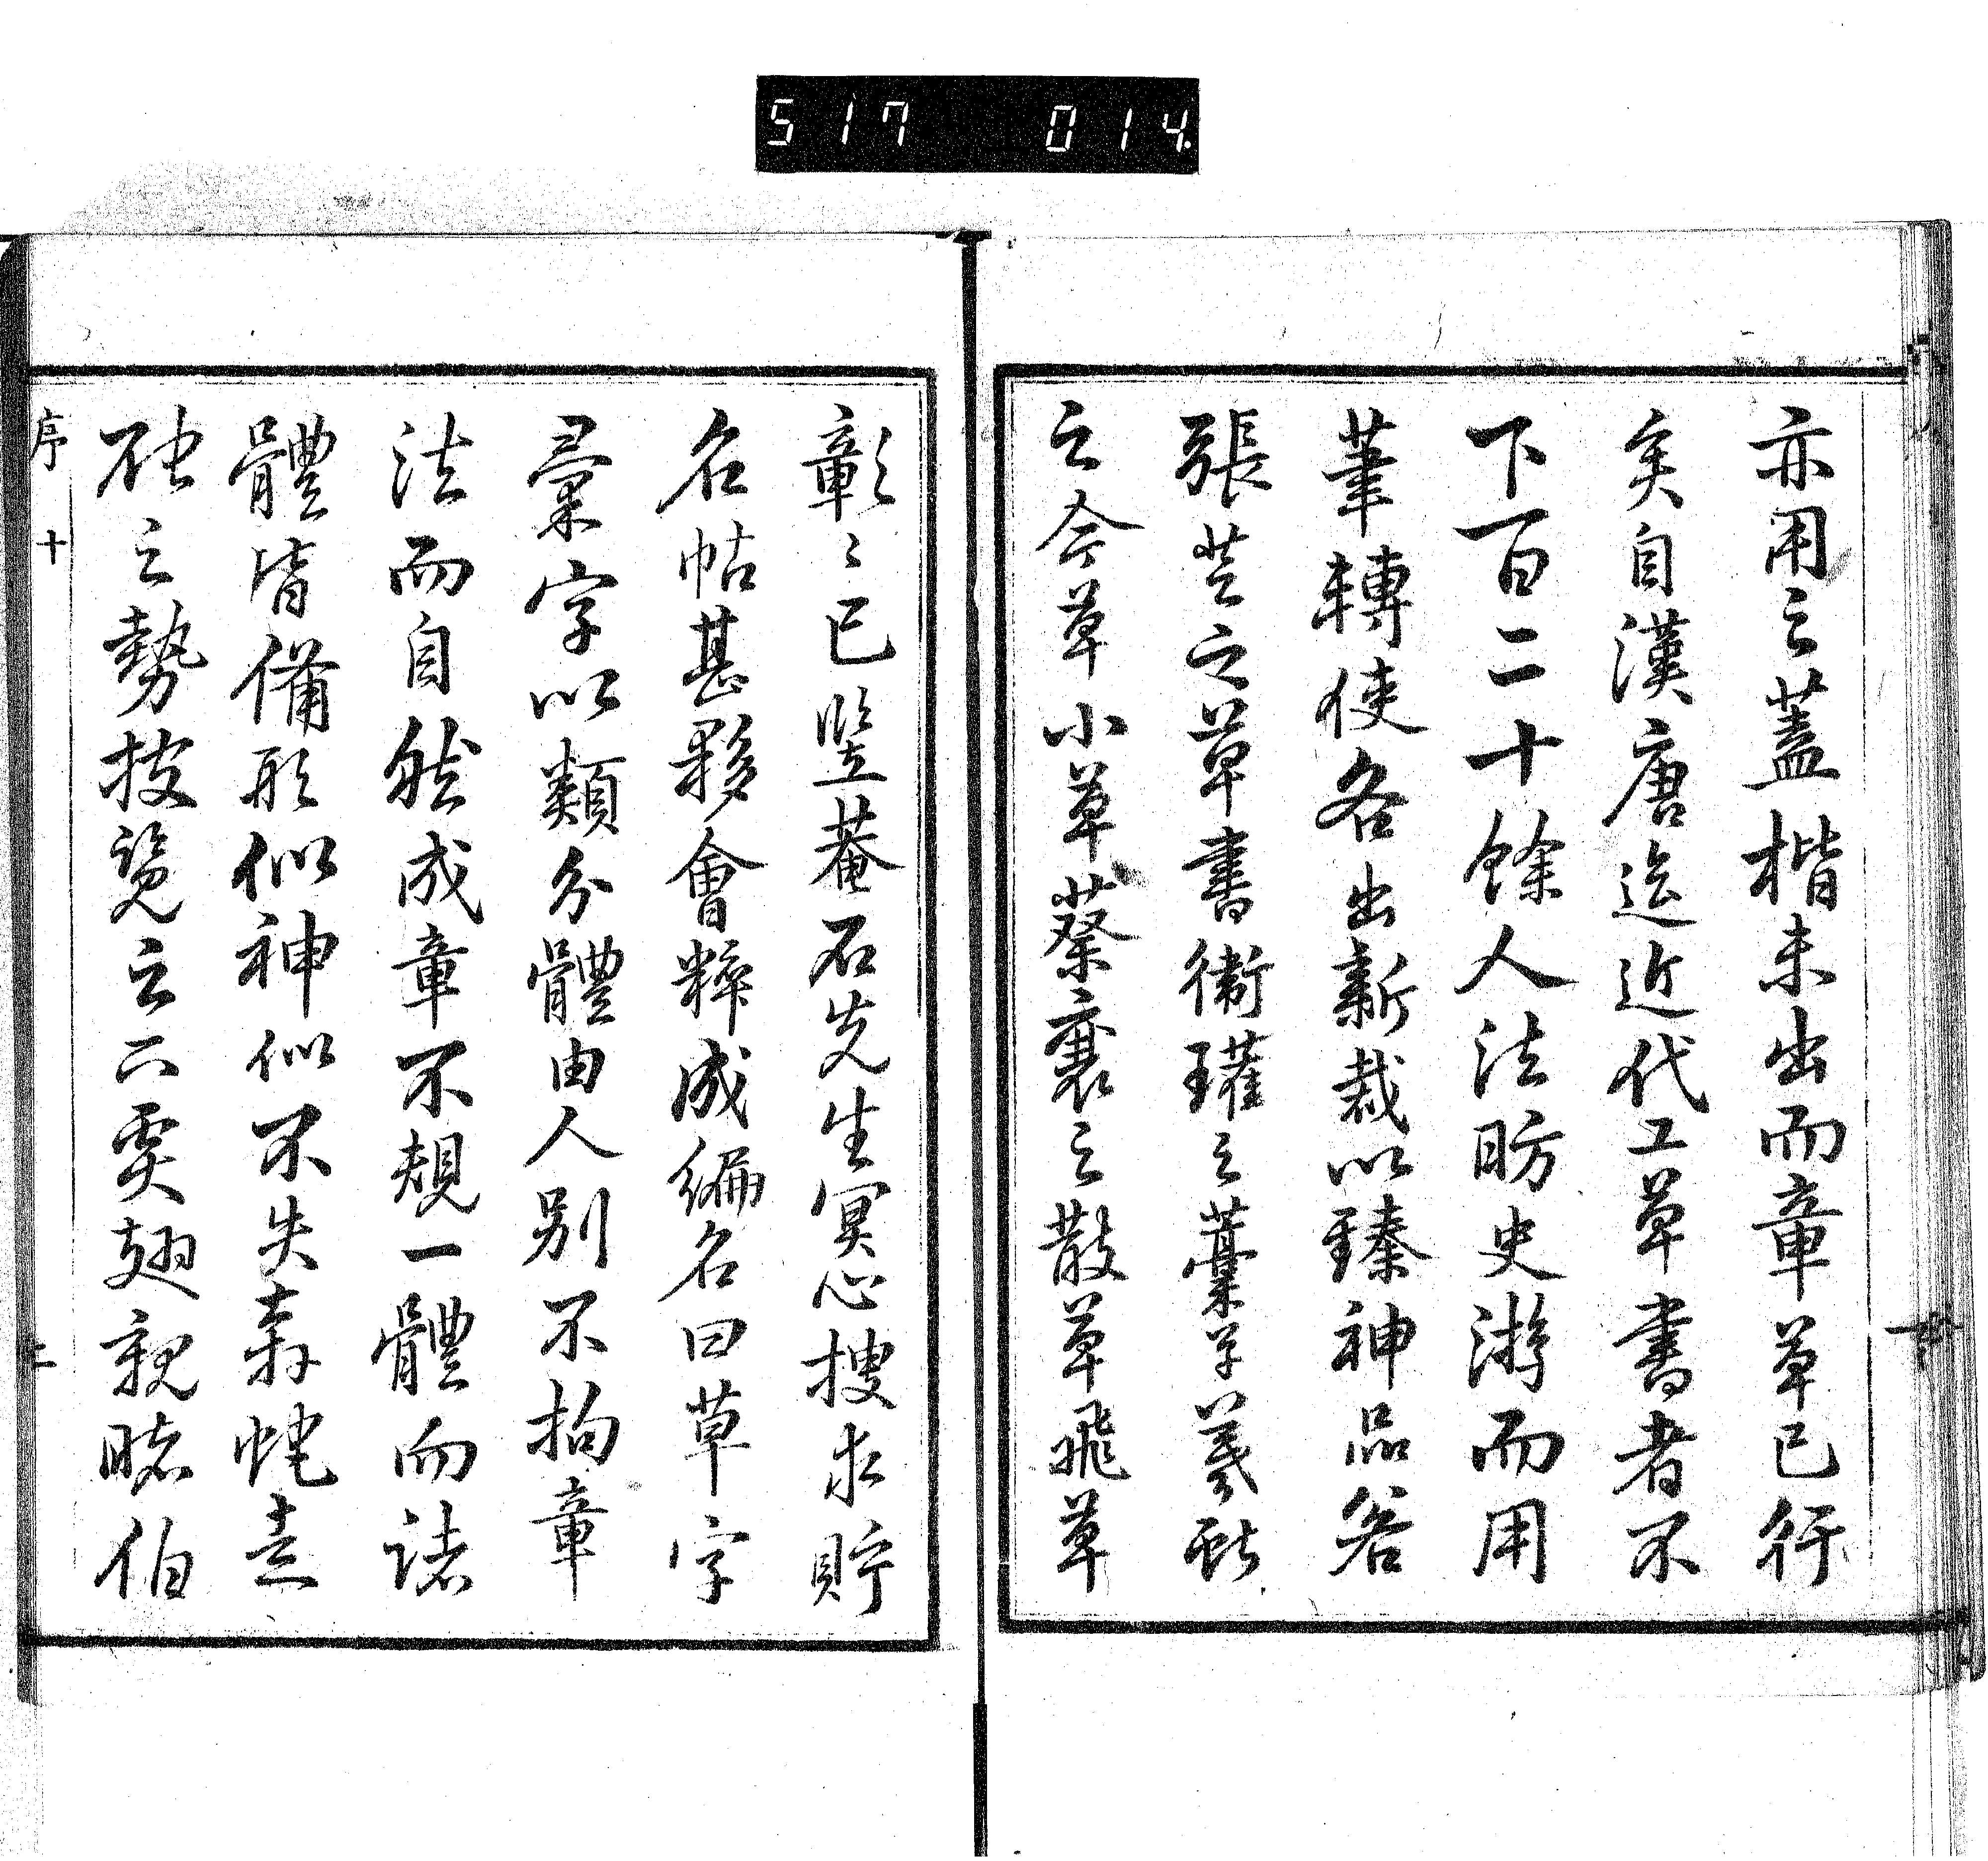 517 014.
亦用之蓋楷未出而章草已行
矣自漢唐迄近代工草書者不
下百二十餘人法昉史游而用
筆轉使各出新裁以臻神品若
張芝之草書衞瓘之藁草羲獻
之今草小草蔡襄之散草飛草
彰〻已豎菴石先生冥心搜求貯
名帖甚夥會粹成編名曰草字
彙字以類分體由人別不拘章
法而自然成章不規一體而諸
體皆備形似神似不失奔蛇走
虺之勢披覽之下奚翅親睹伯
序 十
二